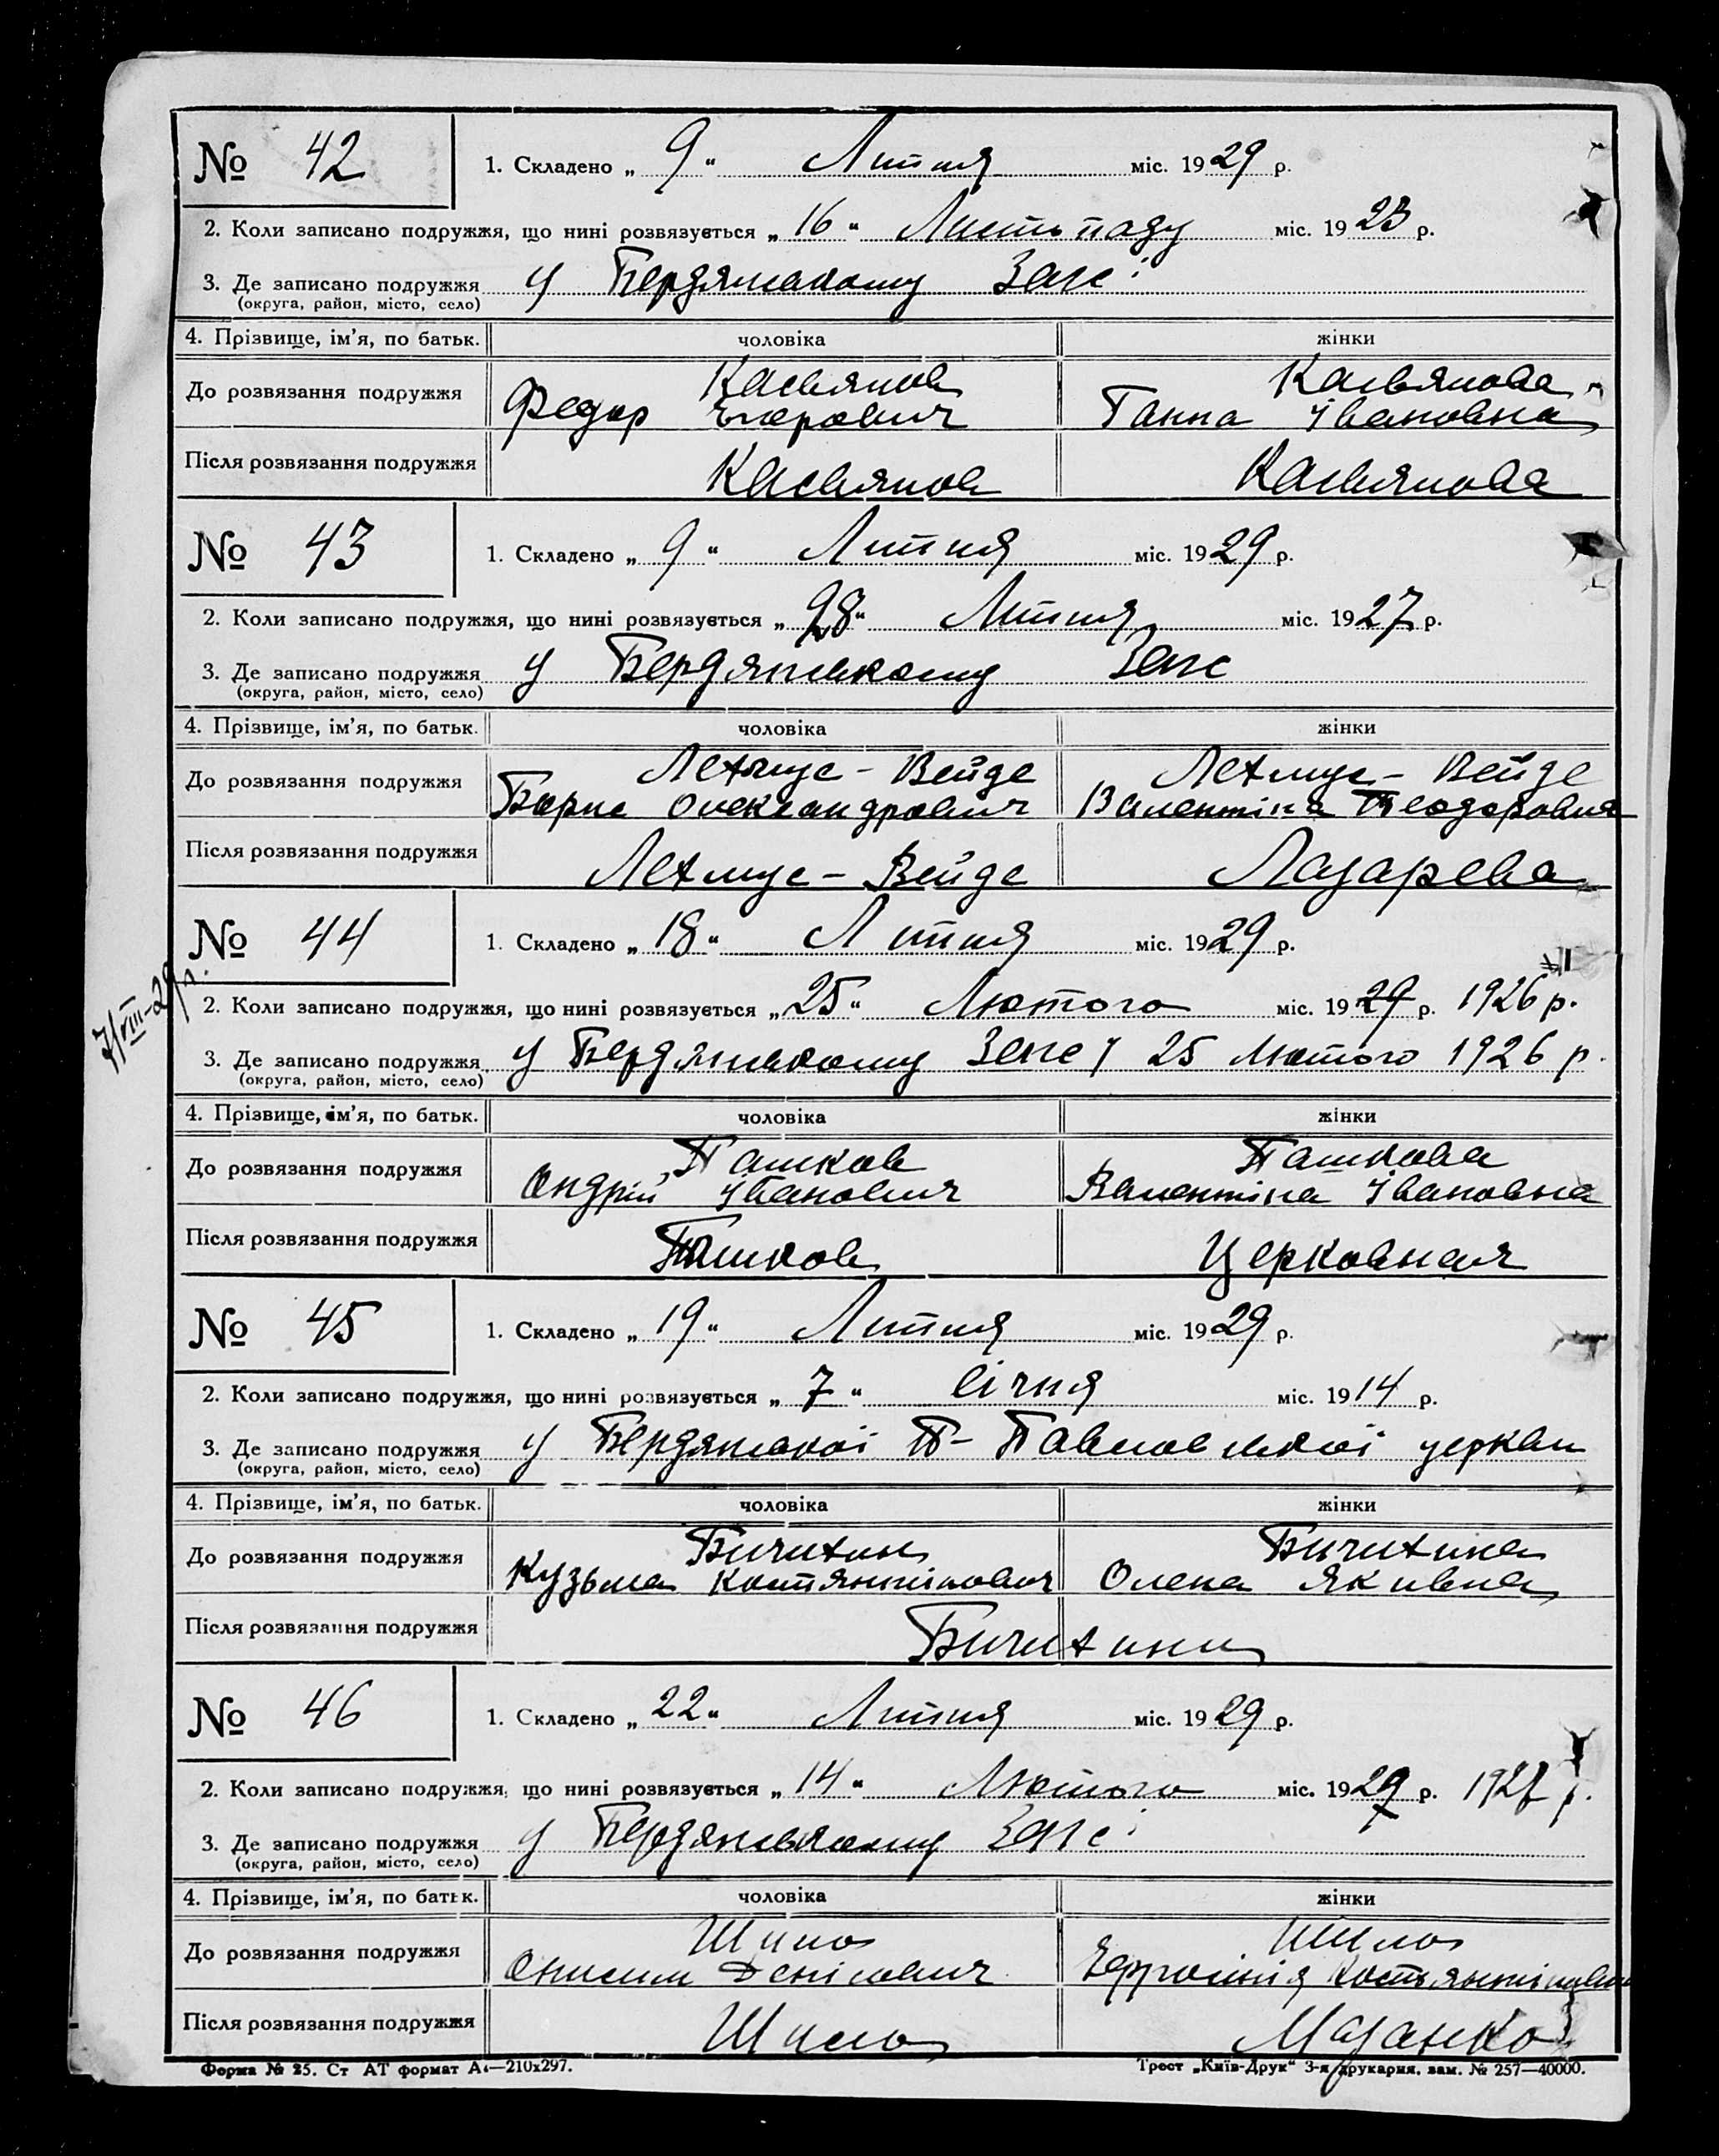 № 42
1. Складено „ 9 “ Липня міс. 1929 р.
2. Коли записано подружжя, що нині розвязується „ 16 “ Листопаду міс. 1923 р.
3. Де записано подружжя у Бердянському Загсі
(округа, район, місто, село)
4. Прізвище, ім’я, по батьк. чоловіка жінки
До розвязання подружжя Касьянов Касьянова
Федор Егорович Ганна Івановна
Після розвязання подружжя Касьянов Касьянова
№ 43
1. Складено „ 9 “ Липня міс. 1929 р.
2. Коли записано подружжя, що нині розвязується „ 28 “ Липня міс. 1927 р.
3. Де записано подружжя у Бердянському Загс
(округа, район, місто, село)
4. Прізвище, ім’я, по батьк. чоловіка жінки
До розвязання подружжя Лехмус - Вейде Лехмус - Вейде
Борис Олександрович Валентіна Теодоровна
Після розвязання подружжя Лехмус - Вейде Лазарева
№ 44
1. Складено „ 18 “ Липня міс. 1929 р.
7/VIII-29 р.
2. Коли записано подружжя, що нині розвязується „ 25 “ Лютого міс. 1929 р. 1926 р.
3. Де записано подружжя у Бердянському Загсу 25 Лютого 1926 р.
(округа, район, місто, село)
4. Прізвище, ім’я, по батьк. чоловіка жінки
До розвязання подружжя Пашков Пашкова
Андрій Іванович Валентіна Івановна
Після розвязання подружжя Пашков Церковная
№ 45
1. Складено „ 19 “ Липня міс. 1929 р.
2. Коли записано подружжя, що нині розвязується „ 7 “ Січня міс. 1914 р.
3. Де записано подружжя у Бердянської П- Павловської церкви
(округа, район, місто, село)
4. Прізвище, ім’я, по батьк. чоловіка жінки
До розвязання подружжя Бичихин Бичихина
Кузьма Костянтінович Олена Яківна
Після розвязання подружжя Бичихини
№ 46
1. Складено „ 22 “ Липня міс. 1929 р.
2. Коли записано подружжя, що нині розвязується „ 14 “ Лютого міс. 1927 р. 1927 р.
3. Де записано подружжя у Бердянському Загсі
(округа, район, місто, село)
4. Прізвище, ім’я, по батьк. чоловіка жінки
До розвязання подружжя Шило Шило
Онисим Денісович Костянтіновна
Після розвязання подружжя Шило Мазанко
Форма № 25. Ст АТ формат А4—210х297. Трест „Київ-Друк“ 3-я друкарня, зам. № 257—40000.